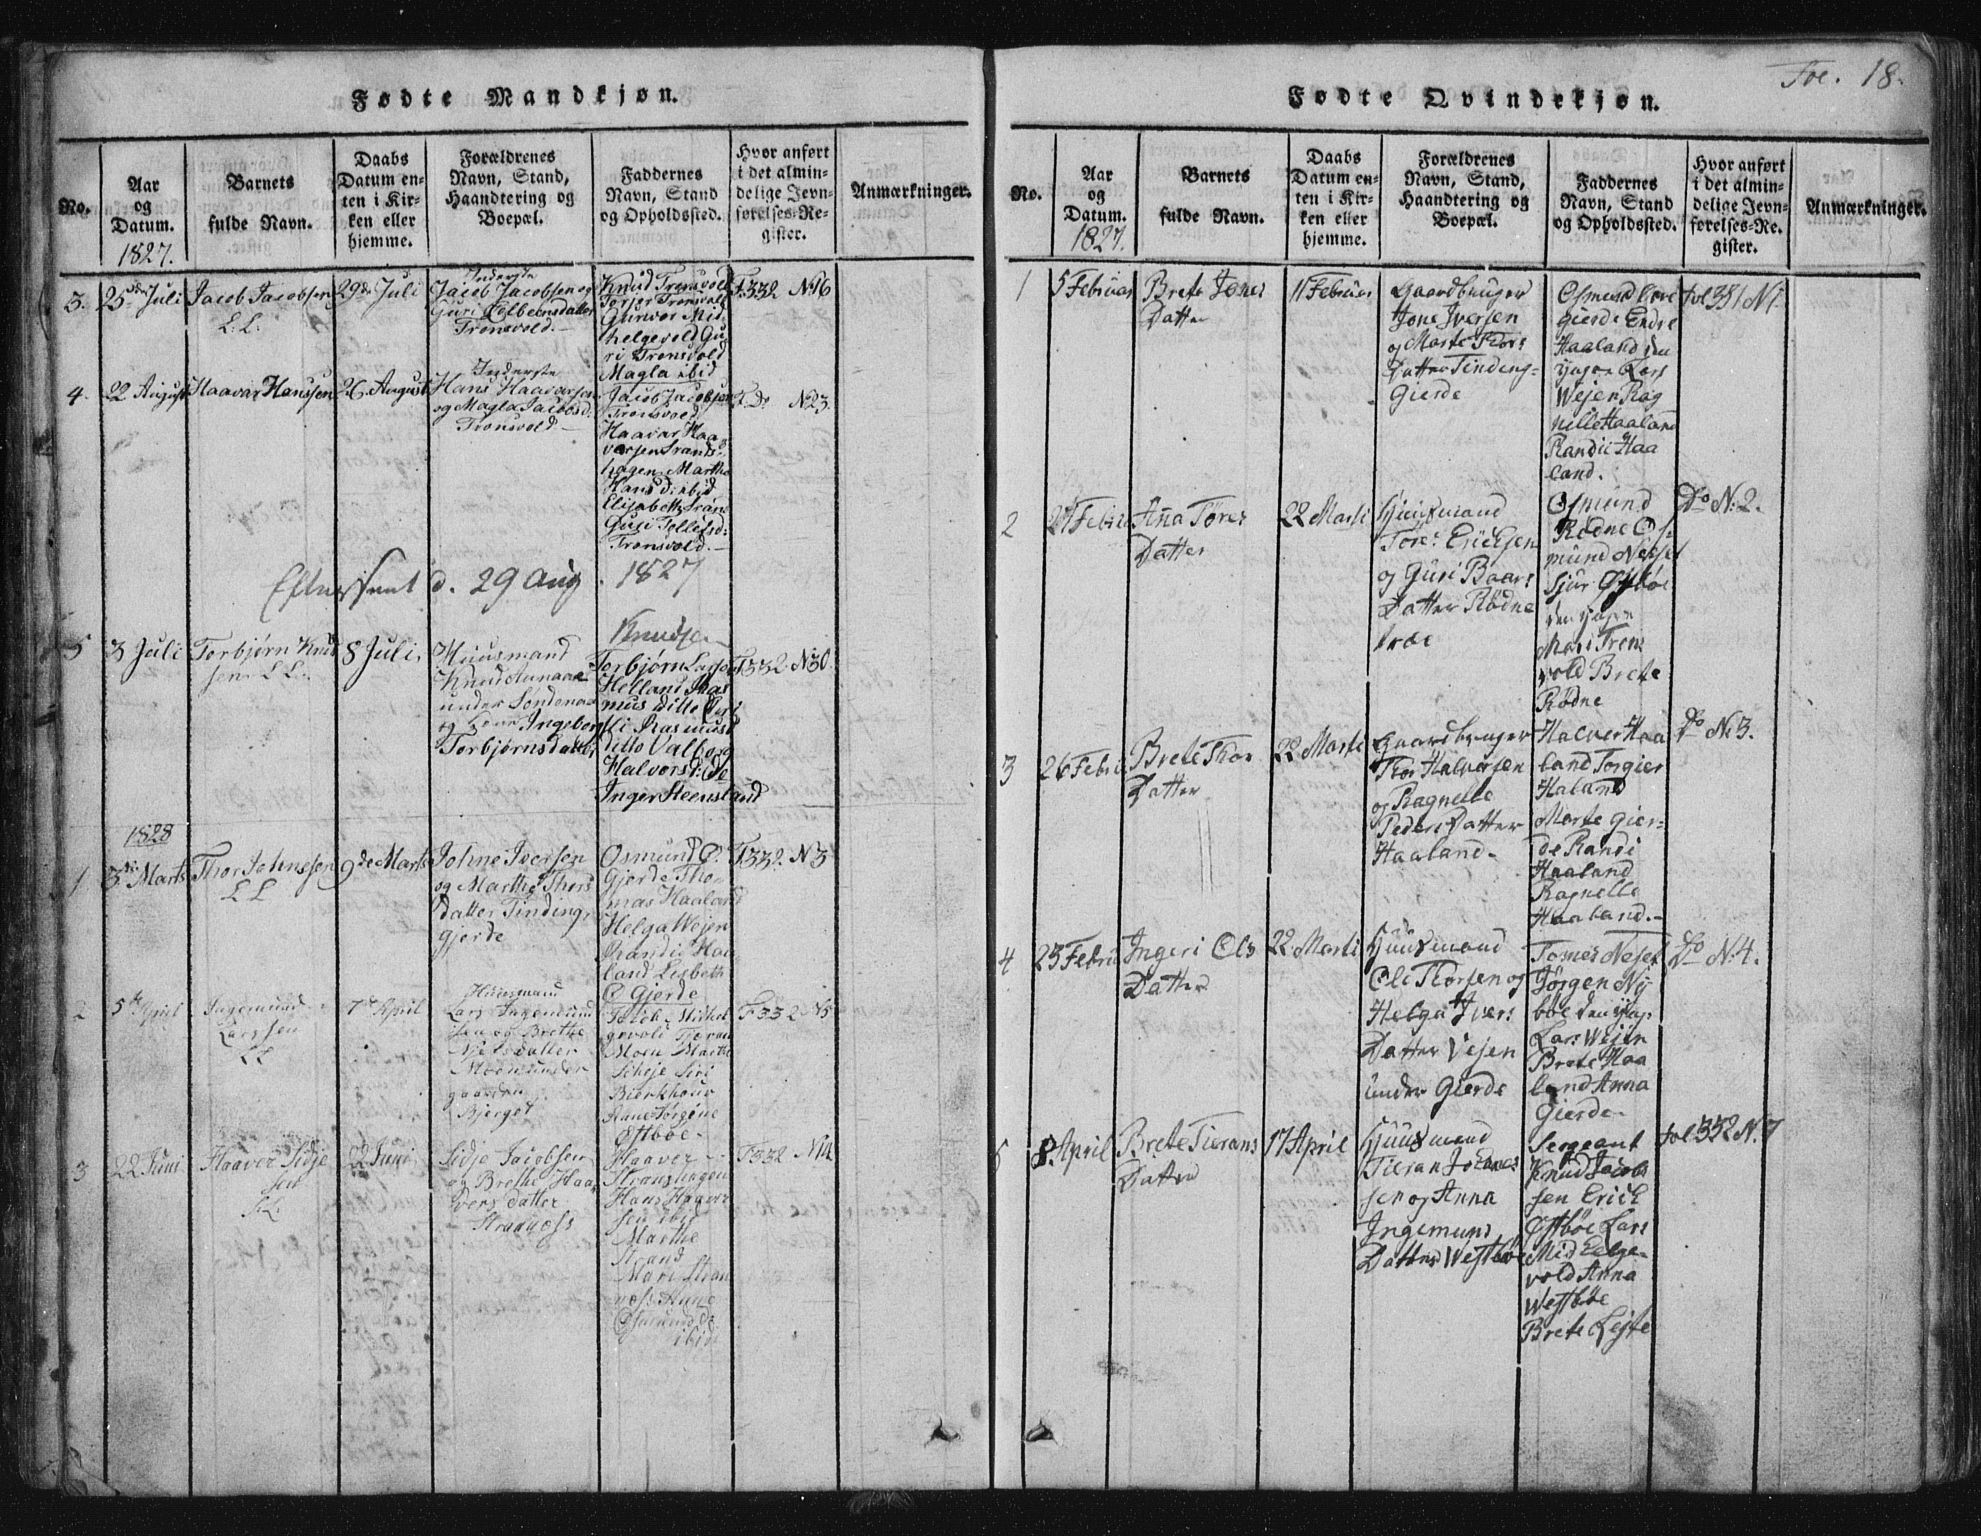 Fødte Mandkjøn.
No.
Aar
og
Datum.
1827.
Barnets
fulde Navn.
Daabs
Datum en-
ten i Kir-
ken eller
hjemme.
Forældrenes
Navn, Stand,
Haandtering og
Boepæl.
Faddernes
Navn, Stand
og Opholdssted.
Hvor anført
i det almin-
delige Jevn-
førelses-Re-
gister.
Anmærkninger.
3.
25de Juli
Jacob Jacobsen
L. L.
29de Juli
Inderste
Jacob Jacobsen og
Guri
Tronsvold.
Knud Tronsvold
Torjer Tronsvold
Gunvor Mid-
helgevold Gu-
ri Tronsvold
Magla ibid
F.332 No 16
4.
22 August
Haavar Hanssen
26. August
Inderste
Hans Haavarsen
og Magla Jacobsd.
Tronsvold.
Jacob Jacobsen
Tronsvold
Haavar Haa-
versen Strands-
hagen Marthe
Hans D. ibid
Elisabeth
Guri Tollefsd:
Tronsvold.
Do No 23.
Efterseet d. 29 Aug. 1827
Knudsen
5
3 Juli
Torbjørn Knud
sen L L.
8 Juli
Huusmand
Knud
under Søndena
og Kone Ingeborg
Torbjørnsdatter
Torbjørn Larsen
Helland Ras
mus ditto
Rasmusd
ditto Valborg
Halvorsd:
Inger Steensland
F332. N30.
1828
1
3de Marts
Thor Johnssen
L L
9de Marts
Johne Iversen
og Marthe Thors
datter Tinding,
gjerde
Osmund O.
Gjerde Tho-
mas Haaland
Helga Wejen
Randie Haa-
land Lisbeth
O Gjerde
F332. N3
2
5te April
Ingemund
Larssen
LL
7de April
Huusmand
Lars Ingemund
sen og Brethe
Nielsdatter
Moen under
gaarden
Bjerget
Midhel
gevold Tieran
Moen Marthe
Siri
Anne Jørgine
Østbøe
F332 N5
3
22 Juni
Haaver Sidje
sen
L.L.
22 Juni
Sidje Jacobsen
og Brethe Haa
vers datter
Strandnæss
Haaver
Strandshagen
Hans Haaver
sen ibid
Marthe
Strand
Mari Stran
næs. Anne
Osmunds D
ibid
F332 N14
Foe. 18.
Fødte Qvindekjøn.
No.
Aar
og
Datum.
1827.
Barnets
fulde Navn.
Daabs
Datum en-
ten i Kir-
ken eller
hjemme.
Forældrenes
Navn, Stand,
Haandtering og
Boepæl.
Faddernes
Navn, Stand
og Opholdssted.
Hvor anført
i det almin-
delige Jevn-
førelses-Re-
gister.
Anmærkninger.
1
5 Februar
Brete Jones
Datter
11 Februar
Gaardbruger
Jone Iversen
og Marte Thors
Datter Tinding-
Gierde
Osmund
Gierde Endre
Haaland den
yngre Lars
Wejen Rag
nille Haaland
Randii Haa
land.
fol 331 N1
2
Febru
Anna Tores
Datter
22 Marti
Huusmand
Tore Ericksen
og Guri Baars
Datter Rødne
træe
Osmund
Rødne Os-
mund Nesset
Sjur Østbøe
den yngre
Mari Trons
vold Brete
Rødne
Do N. 2.
3
26 Febru
Brete Thor
Datter
22 Marti
Gaardbruger
Thor Halversen
og Ragnelle
Peders Datter
Haaland.
Halver Haa
land Torgier
Haland
Marte Gier-
de Randi
Haaland
Ragnelle
Haaland.
Do N. 3.
4
23 Febru
Ingeri Ols
Datter
22. Marti
Huusmand
Ole Thorsen og
Helga Ivers
Datter Vejen
under Gierde
Tomes Neset
Jørgen Ny
bøe den yngre
Lars Wejen
Brete Haa
land Anna
Gierde
Do N. 4.
5
8 April
Brete Tierans
Datter
17 April
Huusmand
Tieran Johanes
sen og Anna
Ingemund
Datter Westbøe
Sergeant
Knud Jacob
sen Erick
Østbøe Lars
Midhelge-
vold Anna
Westbøe
Brete Lejte
fol 332 N. 7